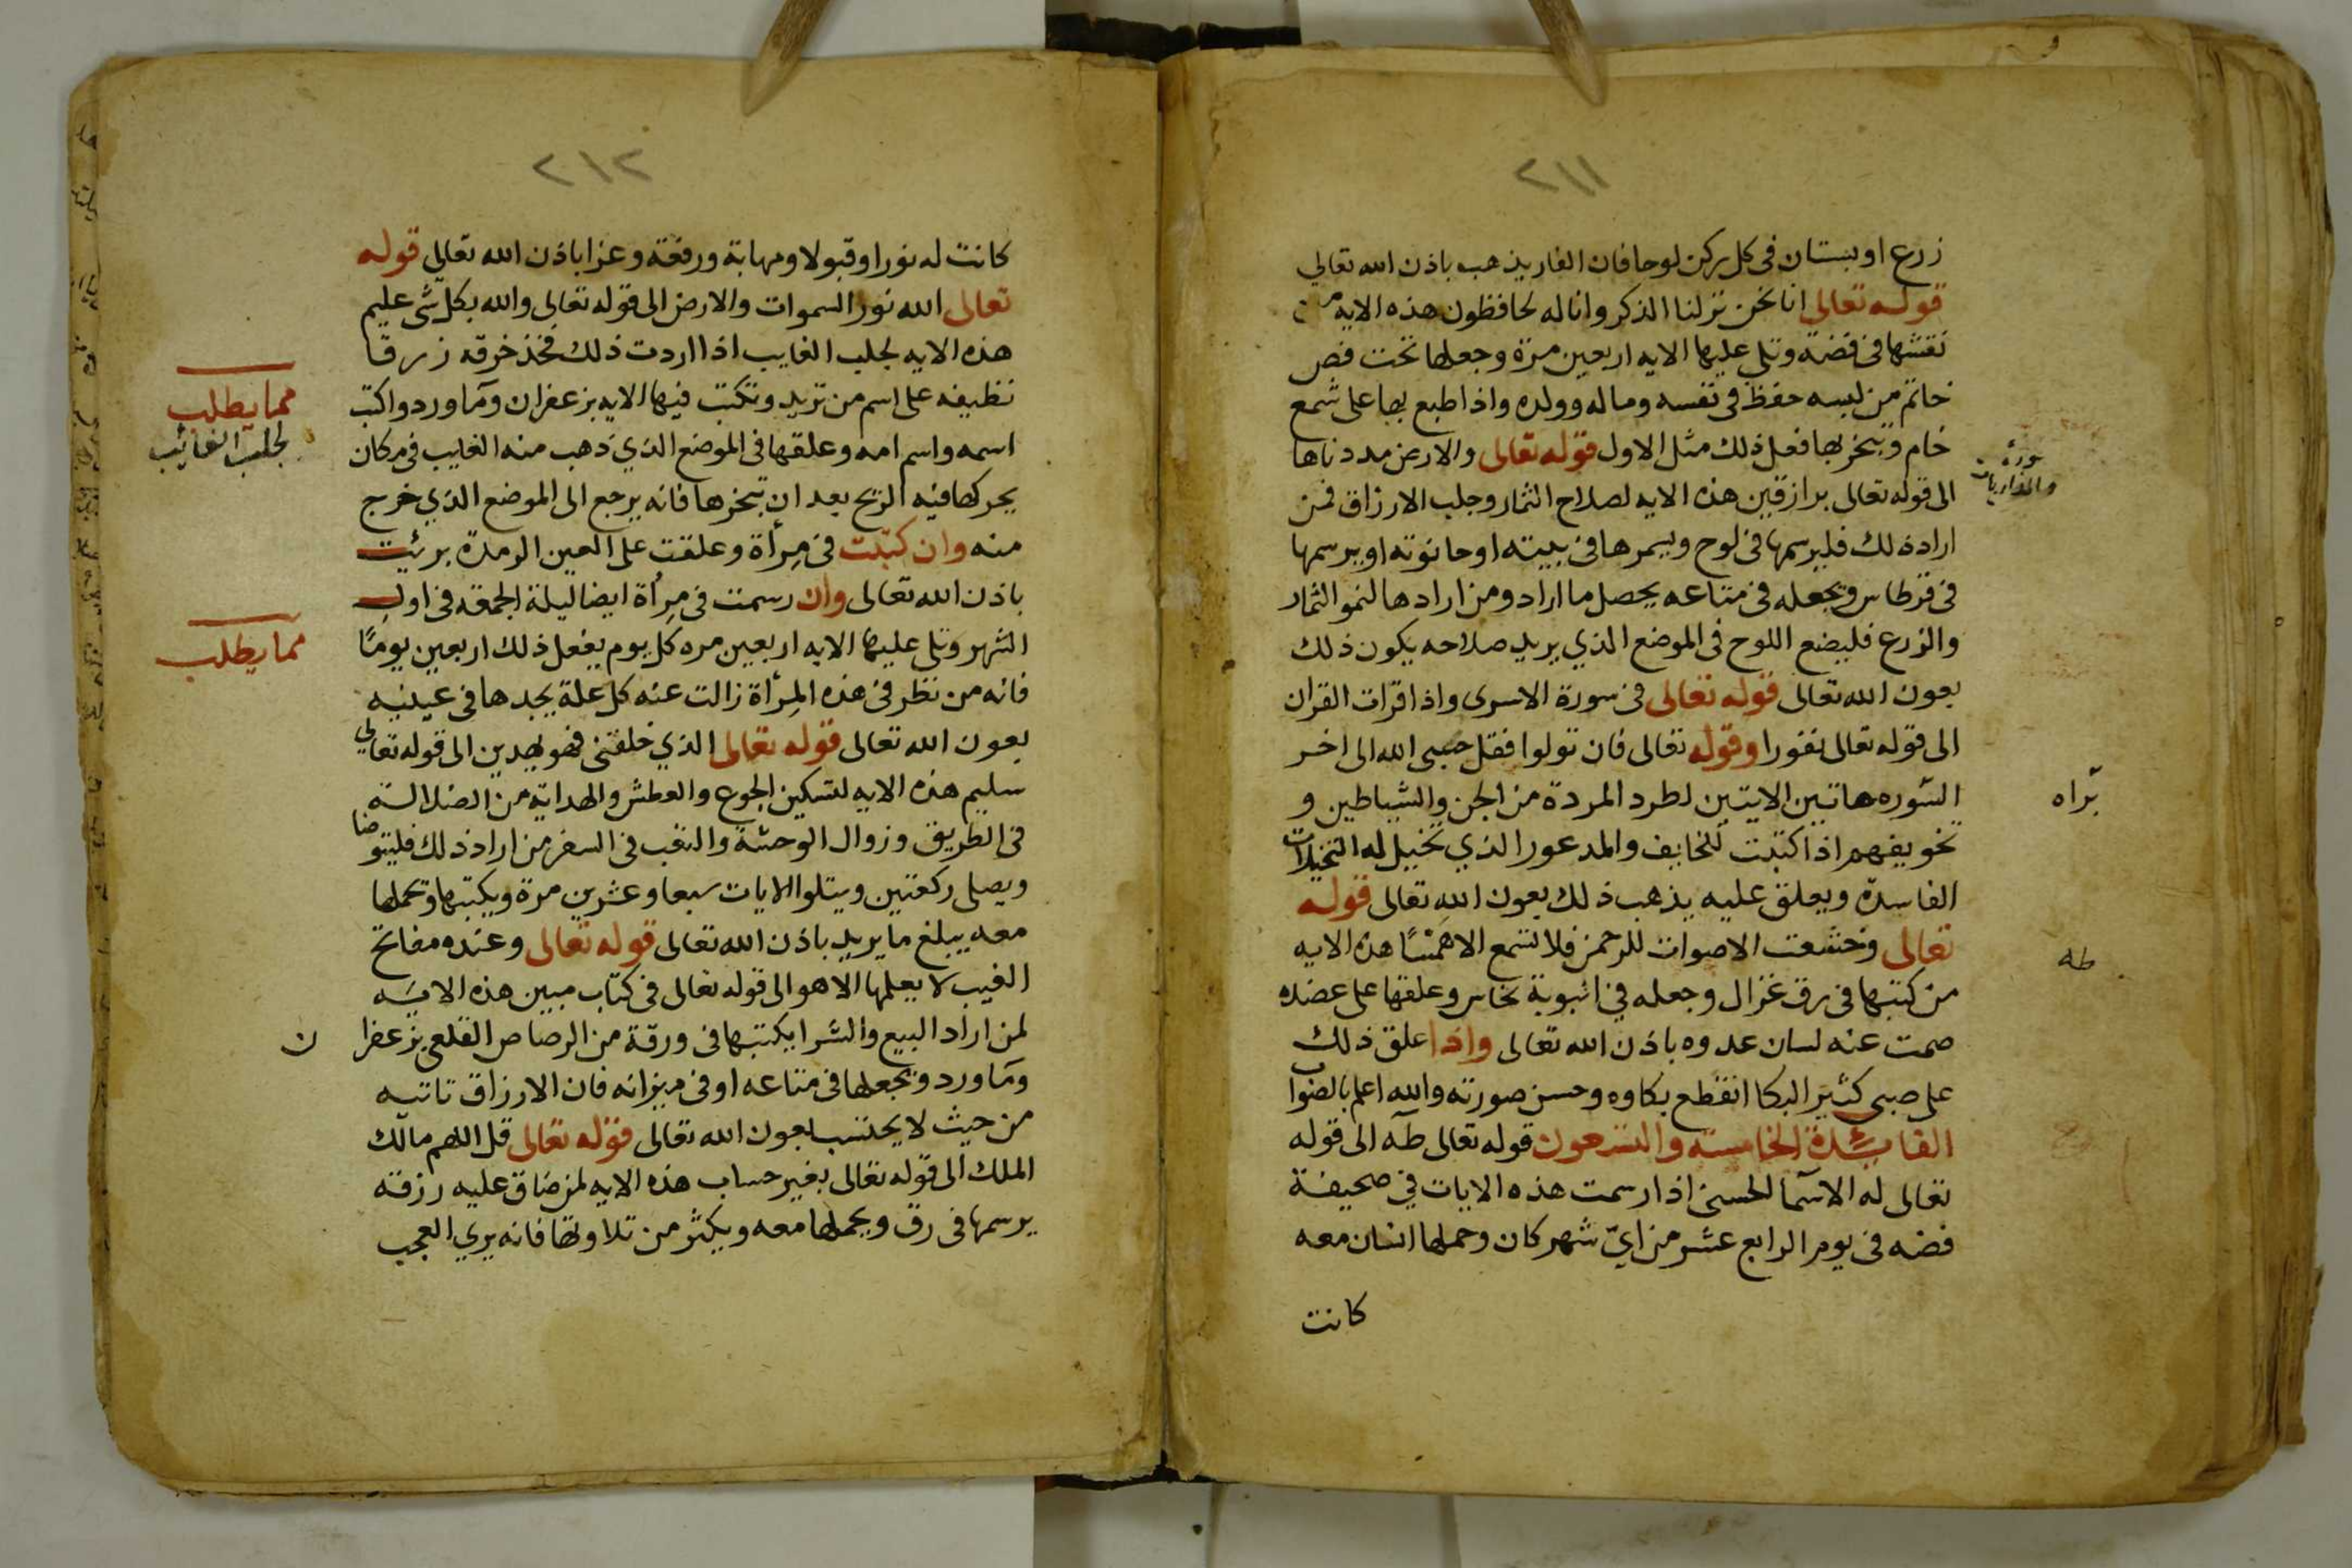 ٢١١
زرع او بستان في كل ركن لوحا فان الفار يذهب باذن الله تعالي
قوله تعالى انا نحن نزلنا الذكر وانا له لحافظون هذه الايه من
نقشها في فضة وتلى عليها الايه اربعين مرة وجعلها تحت فص
خاتم من لبسه حفظ في نفسه وماله وولده واذا طبع بها على شمع
خام وتبخر بها فعل ذلك مثل الاول قوله تعالى والارض مددناها
الى قوله تعالى برازقين هذه الايه لصلاح الثمار وجلب الارزاق فمن
اراد ذلك فليرسمها في لوح ويسمرها في بيته او حانوته او يرسمها
في قرطاس ويجعله في متاعه يحصل ما اراد ومن ارادها لنمو الثمار
والزرع فليضع اللوح في الموضع الذي يريد صلاحه يكون ذلك
بعون الله تعالى قوله تعالى في سورة الاسرى واذا قرات القران
الى قوله تعالى نفورا وقوله تعالى فان تولوا فقل حسبي الله الى اخر
السوره هاتين الايتين لطرد المردة من الجن والشياطين و
تخويفهم اذا كتبت للخايف والمدعور الذي تخيل له التخيلات
الفاسدة ويعلق عليه يذهب ذلك بعون الله تعالى قوله
تعالى وخشعت الاصوات للرحمن فلا تسمع الا همسًا هذه الايه
من كتبها في رق غزال وجعله في انبوبة نحاس وعلقها على عضده
صمت عنه لسان عدوه باذن الله تعالى واذا علق ذلك
على صبي كثير البكا انقطع بكاوه وحسن صورته والله اعلم بالصواب
الفائدة الخامسة والتسعون قوله تعالى طه الى قوله
تعالى له الاسما الحسنى اذا رسمت هذه الايات في صحيفة
فضه في يوم الرابع عشر من ايّ شهر كان وحملها انسان معه
كانت
سورة
والذاريات
برّاه
طه
٢١٢
كانت له نورا وقبولا ومهابة ورفعة وعزا باذن الله تعالى قوله
تعالى الله نور السموات والارض الى قوله تعالى والله بكل شي عليم
هذه الايه لجلب الغايب اذا اردت ذلك فخذ خرقه زرقا
نظيفه على اسم من تريد وتكتب فيها الايه بزعفران وما ورد واكتب
اسمه واسم امه وعلقها في الموضع الذي ذهب منه الغايب في مكان
يحركها فيه الريح بعد ان تبخرها فانه يرجع الى الموضع الذي خرج
منه وان كتبت في مرأة وعلقت على العين الرمدة برئت
باذن الله تعالى وان رسمت في مرأة ايضا ليلة الجمعة في اول
الشهر وتلى عليها الايه اربعين مره كل يوم يفعل ذلك اربعين يومًا
فانه من نظر في هذه المرأة زالت عنه كل علة يجدها في عينيه
بعون الله تعالى قوله تعالى الذي خلقني فهو يهدين الى قوله تعالى
سليم هذه الايه لتسكين الجوع والعطش والهداية من الضلالة
في الطريق وزوال الوحشة والتعب في السفر من اراد ذلك فليتوضا
ويصلى ركعتين ويتلوا الايات سبعا وعشرين مرة ويكتبها وتحملها
معه يبلغ ما يريد باذن الله تعالى قوله تعالى وعنده مفاتح
الغيب لا يعلمها الا هو الى قوله تعالى في كتاب مبين هذه الايه
لمن اراد البيع والشرا يكتبها في ورقة من الرصاص القلعي بزعفرا ن
وما ورد ويجعلها في متاعه او في ميزانه فان الارزاق تاتيه
من حيث لا يحتسب بعون الله تعالى قوله تعالى قل اللهم مالك
الملك الى قوله تعالى بغير حساب هذه الايه لمن ضاق عليه رزقه
يرسمها في رق ويحملها معه ويكثر من تلاوتها فانه يري العجب
مما يطلب
لجلب الغائب
مما يطلب